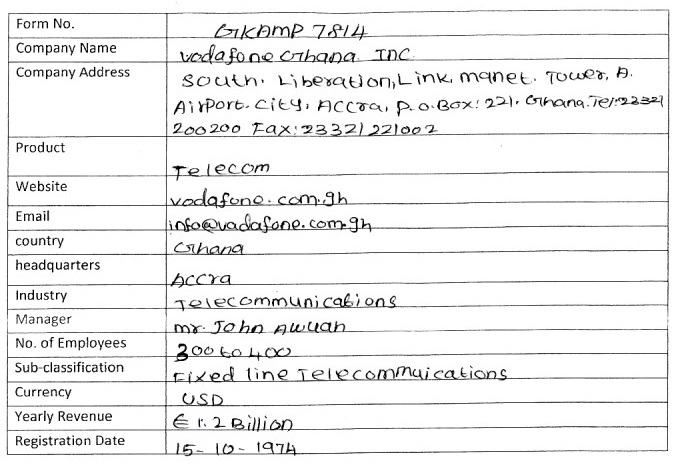 Form No. GKAMP 7814
Company Name Vodafone Ghana. INC
Company Address South. Liberation, Link, manet. Tower, A.
Airport. City, Accra, P.O.Box: 221. Ghana. Tel: 23321
200200 Fax: 23321221002
Product Telecom
Website vodafone.com.gh
Email info@vadafone.com.gh
country Ghana
headquarters Accra
Industry Telecommunications
Manager mr. John Awuah
No. of Employees 300 to 400
Sub-classification Fixed line Telecommuications
Currency USD
Yearly Revenue € 1.2 Billion
Registration Date 15-10-1974